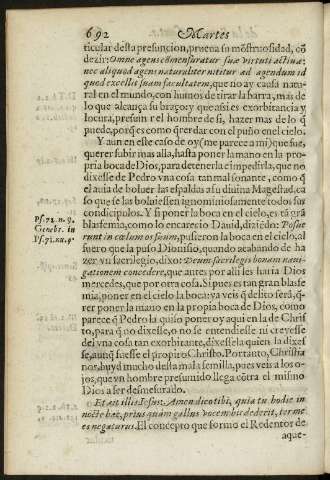 692 Martes
ticular desta presuncion, prueua su mõstruosidad, cõ
dezir: Omne agens cõmensuratur suæ virtuti actiuæ:
nec aliquod agens naturaliter nititur ad agendum id
quod excellit suam facultatem, que no ay causa natu-
ral en el mundo, con humos de tirar la barra, mas de
lo que alcança su braço: y que assi es exorbitancia y
locura, presumir el hombre de si, hazer mas de lo q̃
puede, porq̃ es como q̃rer dar con el puño en el cielo.
Y aun en este caso de oy (me parece a mi) que fue,
querer subir mas alla, hasta poner la mano en la pro-
pria boca de Dios, para detenerla e impedirla, que no
dixesse de Pedro vna cosa tan mal sonante, como q̃
el auia de boluer las espaldas a su diuina Magestad, ca
so que se las boluiessen ignominiosamente todos sus
condicipulos. Y si poner la boca en el cielo, es tã grã
blasfemia, como lo encarecio Dauid, diziẽdo: Posue
Ps. 72. n. 9.
runt in cœlum os suum, pusieron la boca en el cielo: al
Genebr. in
fuero que la puso Dionisio, quando acabando de ha-
Ps. 72. nu. 9.
zer vn sacrilegio, dixo: Deum sacrilegis bonam naui-
gationem concedere, que antes por alli les haria Dios
mercedes, que por otra cosa. Si pues es tan gran blasfe
mia, poner en el cielo la boca: ya veis q̃ delito será, q̃-
rer poner la mano en la propia boca de Dios, como
parece q̃ Pedro la quiso poner oy aqui en la de Chris
to, para q̃ no dixesse, o no se entendiesse ni creyesse
del vna cosa tan exorbitante, dixessela quien la dixes
se, aunq̃ fuesse el propiro Christo. Portanto, Christia
nos, huyd mucho desta mala semilla, pues veis a los o-
jos, que vn hombre presumido llega cõtra el mismo
Dios a ser desmesurado.
Et ait illis Iesus: Amen dico tibi, quia tu hodie in
nocte hac, prius quàm gallus vocem bis dederit, ter me
es negaturus. El concepto que formo el Redentor de
aque-